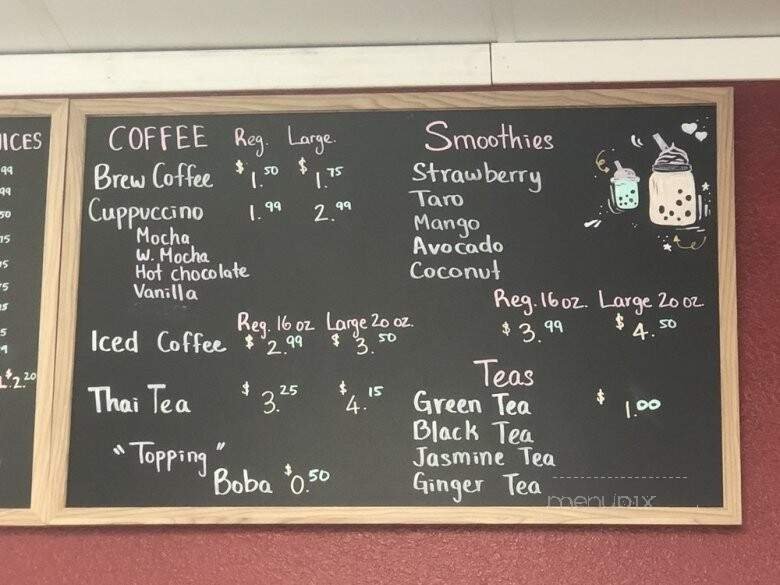 ICES
99
99
50
75
$2.20
COFFEE Reg. Large.
Brew Coffee $1.50 $1.75
Cuppuccino 1.99 2.99
Mocha
W. Mocha
Hot chocolate
Vanilla
Reg. 16 oz Large 20 oz.
Iced Coffee $2.99 $3.50
Thai Tea $3.25 $4.15
"Topping"
Boba $0.50
Smoothies
Strawberry
Taro
Mango
Avocado
Coconut
Reg. 16 oz. Large 20 oz
$3.99 $4.50
Teas
Green Tea $1.00
Black Tea
Jasmine Tea
Ginger Tea
menupix